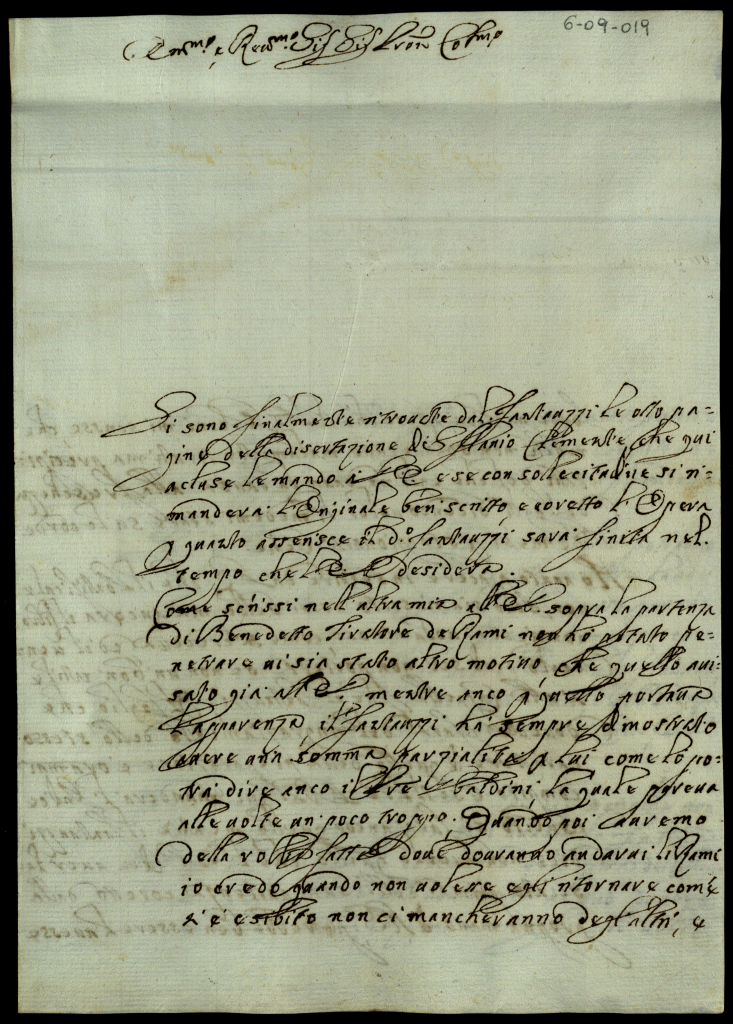 6-09-019
Em.mo e Rev.mo Sig.r Sig.r Pron Col.mo
Si sono finalmente ritrovate dal Fantauzzi le otto pa=
gine della disertazione di S Flavio Clemente, che qui
acluse le mando a V.E. e se con sollecitudine si ri=
manderà l'originale ben scritto, e coretto l'Opera
p quanto asserisce il d.o Fantauzzi sarà finita nel
tempo che V.E. desidera.
Come scrissi nell'altra mia all'E.V. sopra la partenza
di Benedetto Tiratore de Rami non hò potuto pe=
netrare vi sia stato altro motivo, che quello avi=
sato già all'E.V. mentre anco p quello portava
l'apparenza, il Fantauzzi hà sempre dimostrato
avere una somma parzialità p lui come lo po=
trà dire anco il Pre Ubaldini, la quale pareva
alle volte un poco troppo. Quando poi avremo
della robba fatta dove dovranno andarvi li Rami
io credo quando non volesse egli ritornare come
si è esibito non ci mancheranno degl'altri, e